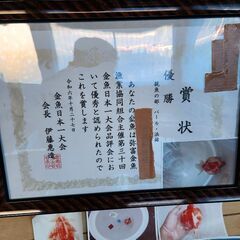 賞状
優勝
あなたの金魚は弥富金魚
漁業協同組合主催第三十回
金魚日本一大会品評会にお
いて優秀と認められたので
これを賞します
令和六年十月二十七日
金魚日本一大会
会長 伊藤惠造